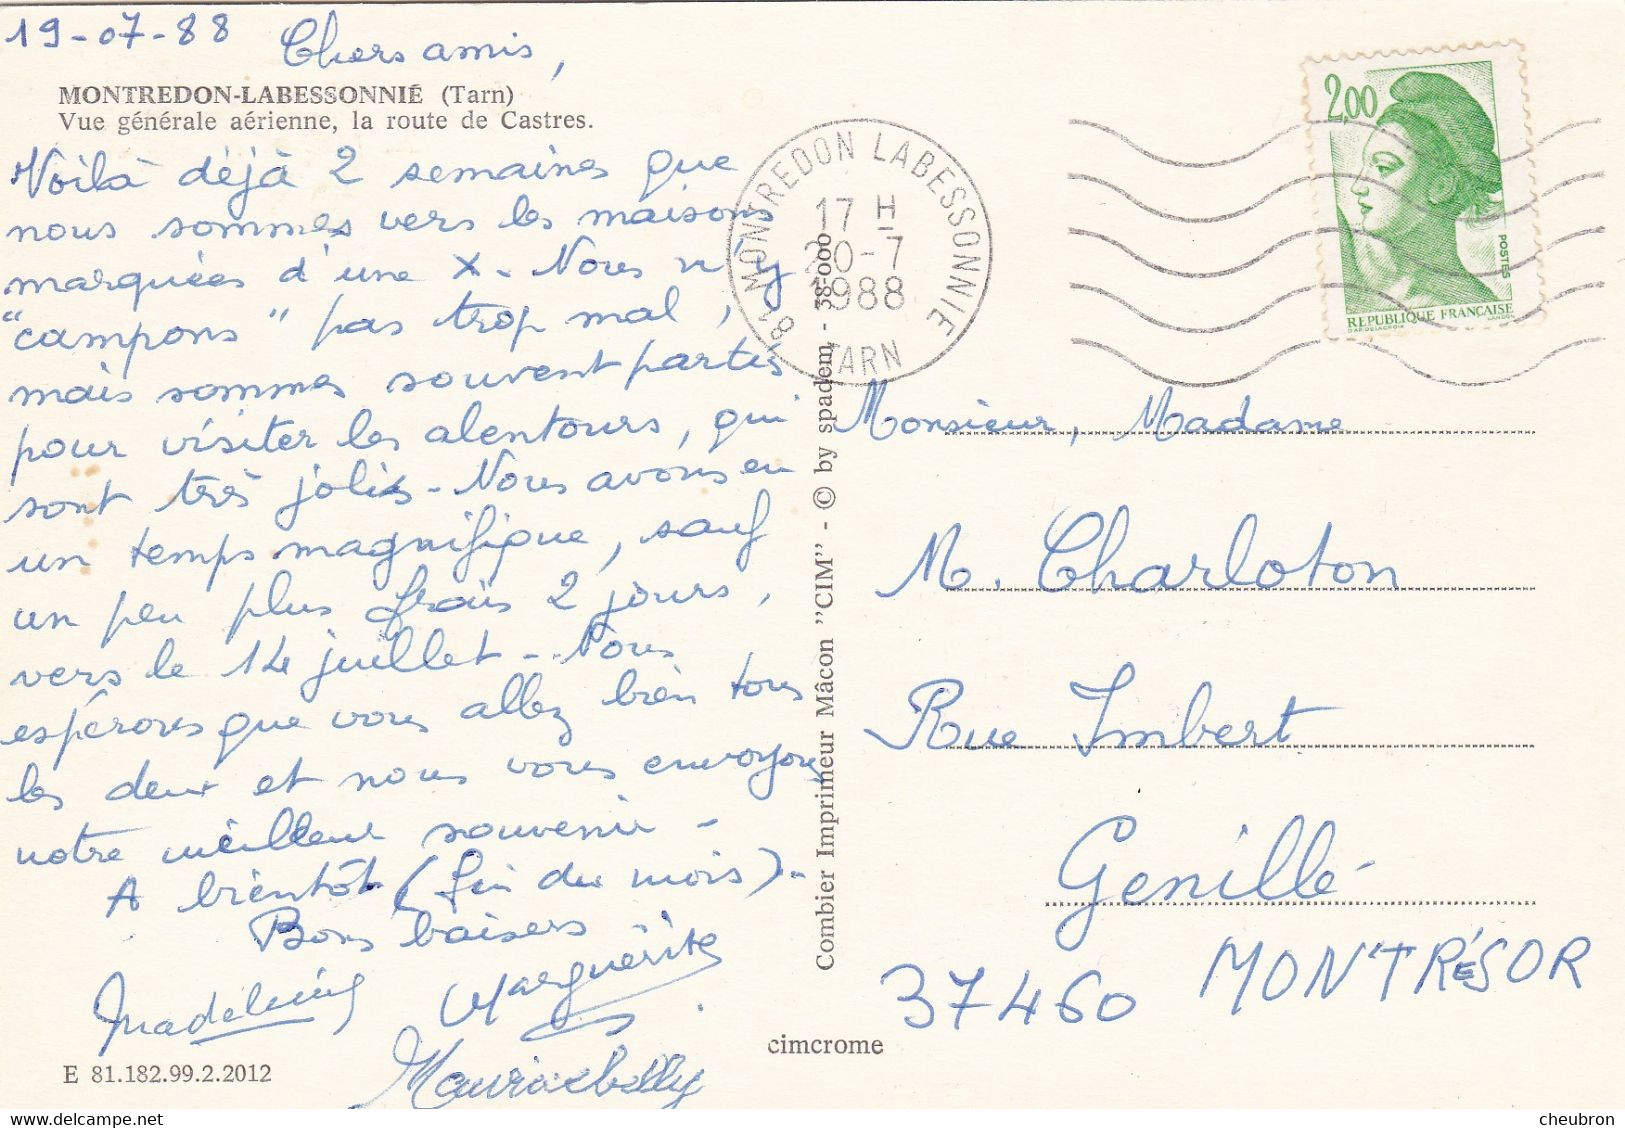 19-07-88
Chers amis,
MONTREDON-LABESSONNIÉ (Tarn)
Vue générale aérienne, la route de Castres.
Voilà déjà 2 semaines que
nous sommes vers les maisons
marquées d'une X. Nous n'y
"campons" pas trop mal,
mais sommes souvent partis
pour visiter les alentours, qui
sont très jolis. Nous avons eu
un temps magnifique, sauf
un peu plus frais 2 jours,
vers le 14 juillet. Nous
espérons que vous allez bien tous
les deux et nous vous envoyons
notre meilleur souvenir.
A bientôt (fin du mois).
Bons baisers
Madeleine Marguerite
E 81.182.99.2.2012
cimcrome
Combier Imprimeur Mâcon "CIM" - © by spadem - 38-000
81 MONTREDON LABESSONNIE
17 H
20-7
1988
TARN
2,00
POSTES
REPUBLIQUE FRANÇAISE
D'AP. DELACROIX GANDON
Monsieur, Madame
M. Charloton
Rue Imbert
Genillé
37460 MONTRÉSOR
www.delcampe.net
cheubron